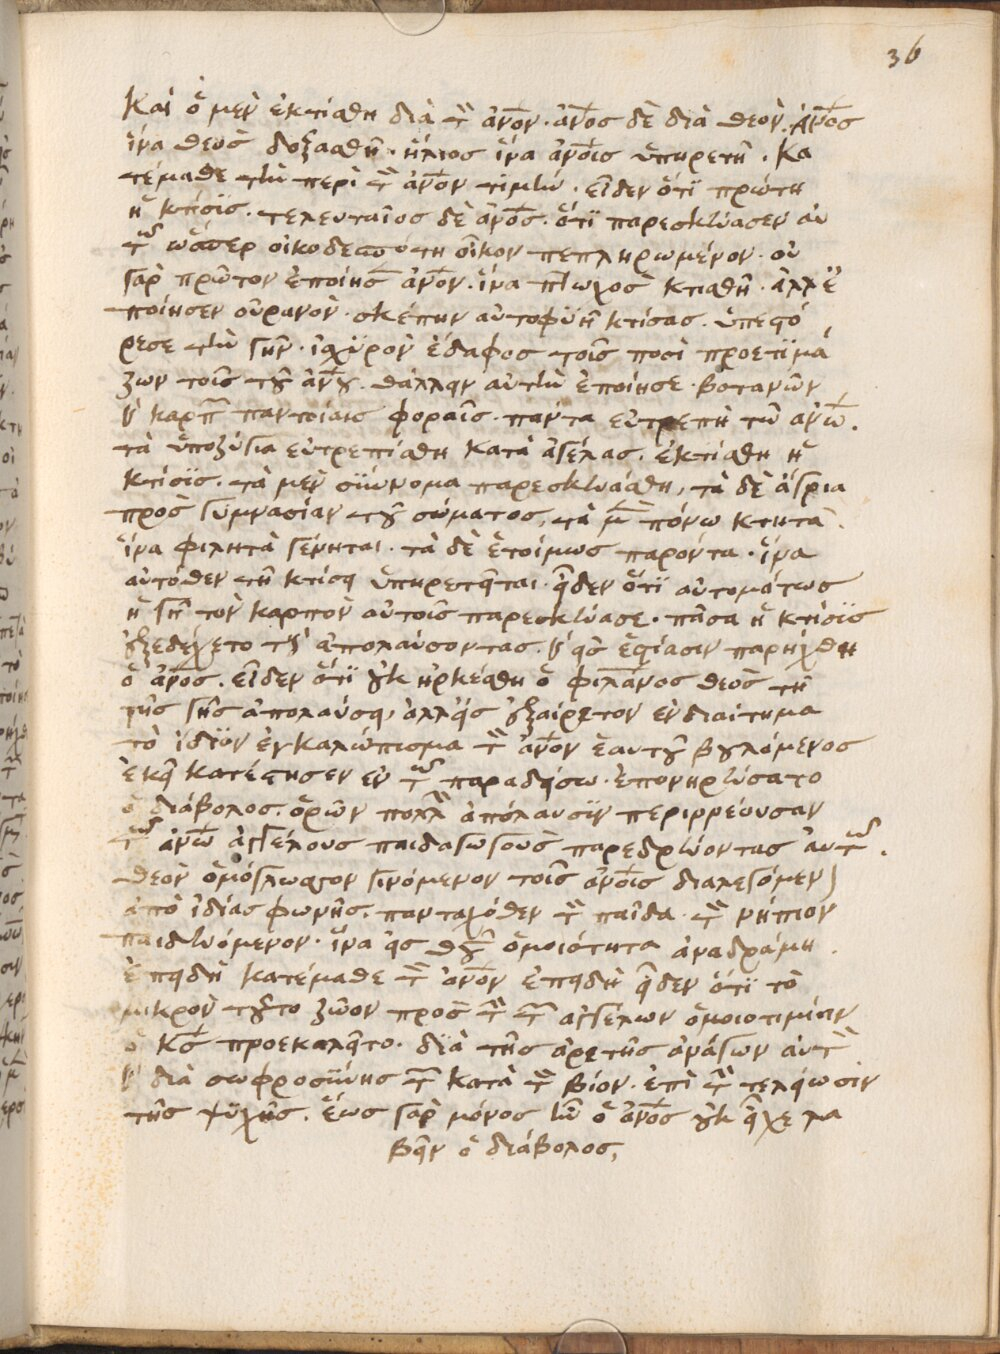 36
Καὶ ὁ μὲν ἐκτίσθη διὰ τ ἀνον· ἀνος δὲ διὰ θεόν. ἀνος
ἵνα θεὸς δοξασθῆ· ἥλιος ἵνα ἀνοις ὑπηρετῆ. Κα
τέμαθε τὴν περὶ τ ἀνον τιμήν. εἶδεν ὅτι πρώτη
ἡ κτίσις. τελευταῖος δὲ ἀνος. ὅτι παρεσκεύασεν αυ
τῶ ὥσπερ οἰκοδεσπότη οἶκον πεπληρωμένον· οὐ
γὰρ πρῶτον ἐποίησε ἀνον. ἵνα πτωχὸς κτισθῆ· ἀλλ' ἐ
ποίησεν οὐρανὸν· σκέπην αὐτοφυῆ κτίσας. ὑπεστό
ρεσε τὴν γῆν· ἰσχυρὸν ἔδαφος τοῖς ποσὶ προετιμά
ζων τοῖς τοῦ ἀνου. θάλλειν αὐτὴν ἐποίησε· βοτανῶν
καὶ καρπ παντοίαις φοραῖς· πάντα εὐτρεπῆ τῶ ἀνω.
τὰ ὑποζύγια εὐτρεπίσθη κατὰ ἀγέλας. ἐκτίσθη ἡ
κτίσις. τὰ μὲν σύννομα παρεσκευάσθη, τὰ δὲ ἄγρια
πρὸς γυμνασίαν τοῦ σώματος, τὰ μ πόνω κτητὰ.
ἵνα φιλητὰ γένηται· τὰ δὲ ἑτοίμως παρόντα· ἵνα
αὐτόθεν τῆ κτίσει ὑπηρετεῖται· εἶδεν ὅτι αὐτομάτως
ἡ γῆ τὸν καρπὸν αὐτοῖς παρεσκεύασε· πᾶσα ἡ κτίσις
ἐξεδέχετο τοὺς ἀπολαύσοντας. καὶ εἰς ἑστίασιν παρήχθη
ὁ ἀνος. εἶδεν ὅτι οὐκ ἠρκέσθη ὁ φιλανος θεὸς τῆ
τῆς γῆς ἀπολαύσει, ἀλλ' εἰς ἐξαίρετον ἐνδιαίτημα
τὸ ἴδιον ἐγκαλώπισμα τ ἀνον ἑαυτοῦ βουλόμενος
ἐκεῖ κατέστησεν ἐν τῶ παραδείσω· ἐπονηρεύσατο
ὁ διάβολος. ὁρῶν πολλ ἀπόλαυσιν περιρρέουσαν
τῶ ἀνω ἀγγέλους παιδαγωγοὺς παρεδρεύοντας αὐτῶ.
θεὸν ὁμόγλωσσον γινόμενον τοῖς ἀνοις διαλεγόμεν
ἀπὸ ἰδίας φωνῆς. πανταχόθεν τ παῖδα· τ νήπιον
παιδευόμενον· ἵνα εἰς θεοῦ ὁμοιότητα ἀναδράμη.
ἐπειδὴ κατέμαθε τ ἀνον ἐπειδὴ εἶδεν ὅτι τὸ
μικρὸν τοῦτο ζῶον πρὸς τ τ ἀγγέλων ὁμοιοτιμίαν
ὁ κς προεκαλεῖτο· διὰ τῆς ἀρετῆς ἀνάγων αὐτ
καὶ διὰ σωφροσύνης τ κατὰ τ βίον· ἐπὶ τ τελείωσιν
τῆς ψυχῆς. ἕως γὰρ μόνος ἦν ὁ ἀνος οὐκ εἶχε λα
βεῖν ὁ διάβολος,